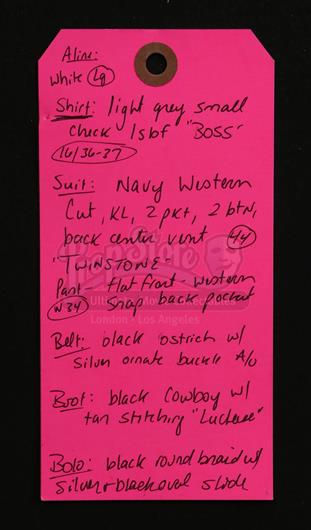 Aline:
White Lg
Shirt: light grey small
check lsbf "BOSS"
16/36-37
Suit: Navy Western
Cut, KL, 2 pkt, 2 btn,
back center vent 44
"TWINSTONE"
Pant - flat front - western
W34 snap back pocket
Belt: black ostrich w/
silver ornate buckle A/O
Boot: black Cowboy w/
tan stitching "Luchese"
Bolo: black round braid w/
silver + black oval slide
The
PropStore
Ultimate Movie Collectables
London - Los Angeles